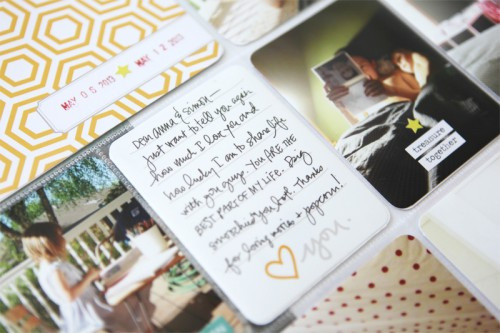 MAY 06 2013 ★ MAY 12 2013
Dear anna & simon—
Just want to tell you again
how much I love you and
how lucky I am to share life
with you guys. YOU ARE THE
BEST PART OF MY LIFE. Doing
you Thanks
for loving movies + popcorn!
♡ you.
treasure
together